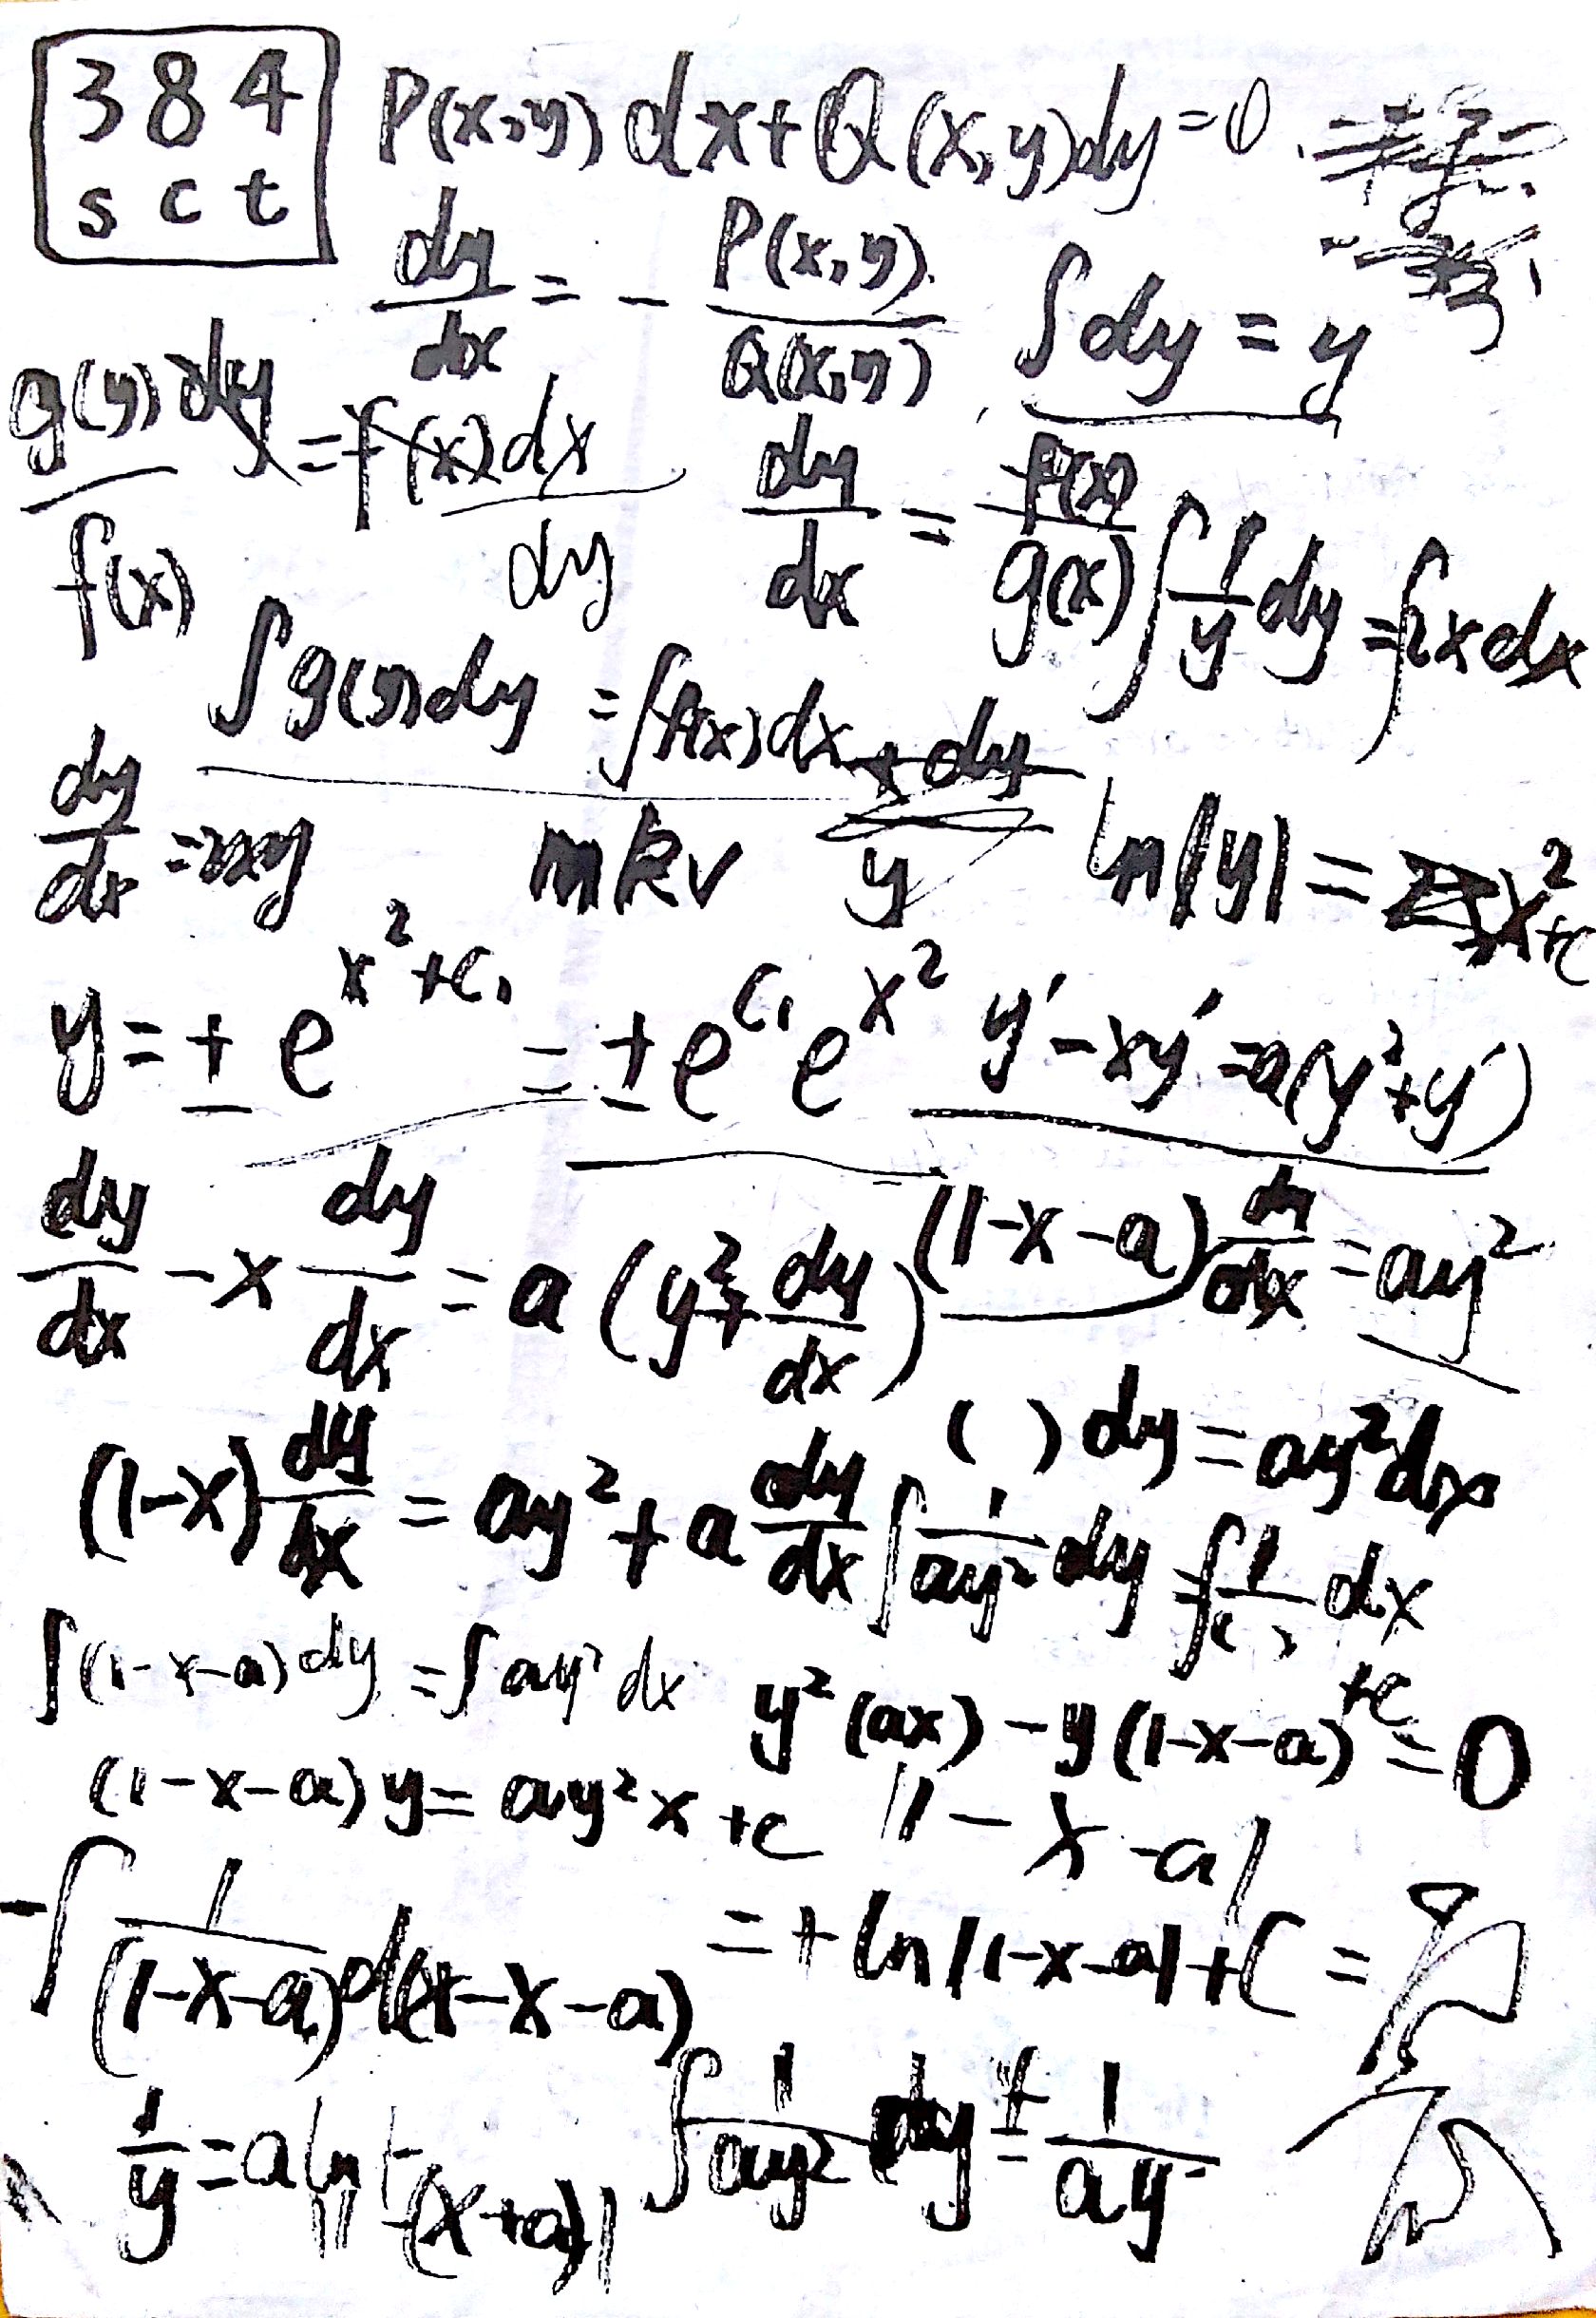 384
sct
P(x,y)dx+Q(x,y)dy=0
dy/dx = - P(x,y)/Q(x,y)
∫dy = y
g(y)dy/f(x) = f(x)dx/dy
dy/dx = f(x)/g(x)
∫1/y dy = ∫2xdx
∫g(y)dy = ∫f(x)dx
dy/dx = 2xy
mkv
ln|y| = x²+c
y = ± e^(x²+c₁) = ± e^(c₁) e^(x²)
y'-xy'=a(y²+y')
dy/dx - x dy/dx = a(y²+dy/dx)
(1-x-a)dy/dx = ay²
( )dy = ay²dx
(1-x)dy/dx = ay²+a dy/dx
∫1/ay² dy = ∫1/( ) dx
∫(1-x-a)dy = ∫ay²dx
y²(ax)-y(1-x-a)+c=0
(1-x-a)y = ay²x+c
|1-x-a|
-∫1/(1-x-a) d(1-x-a) = +ln|1-x-a|+C =
1/y = a ln|1-(x+a)|
∫1/ay² dy = 1/ay